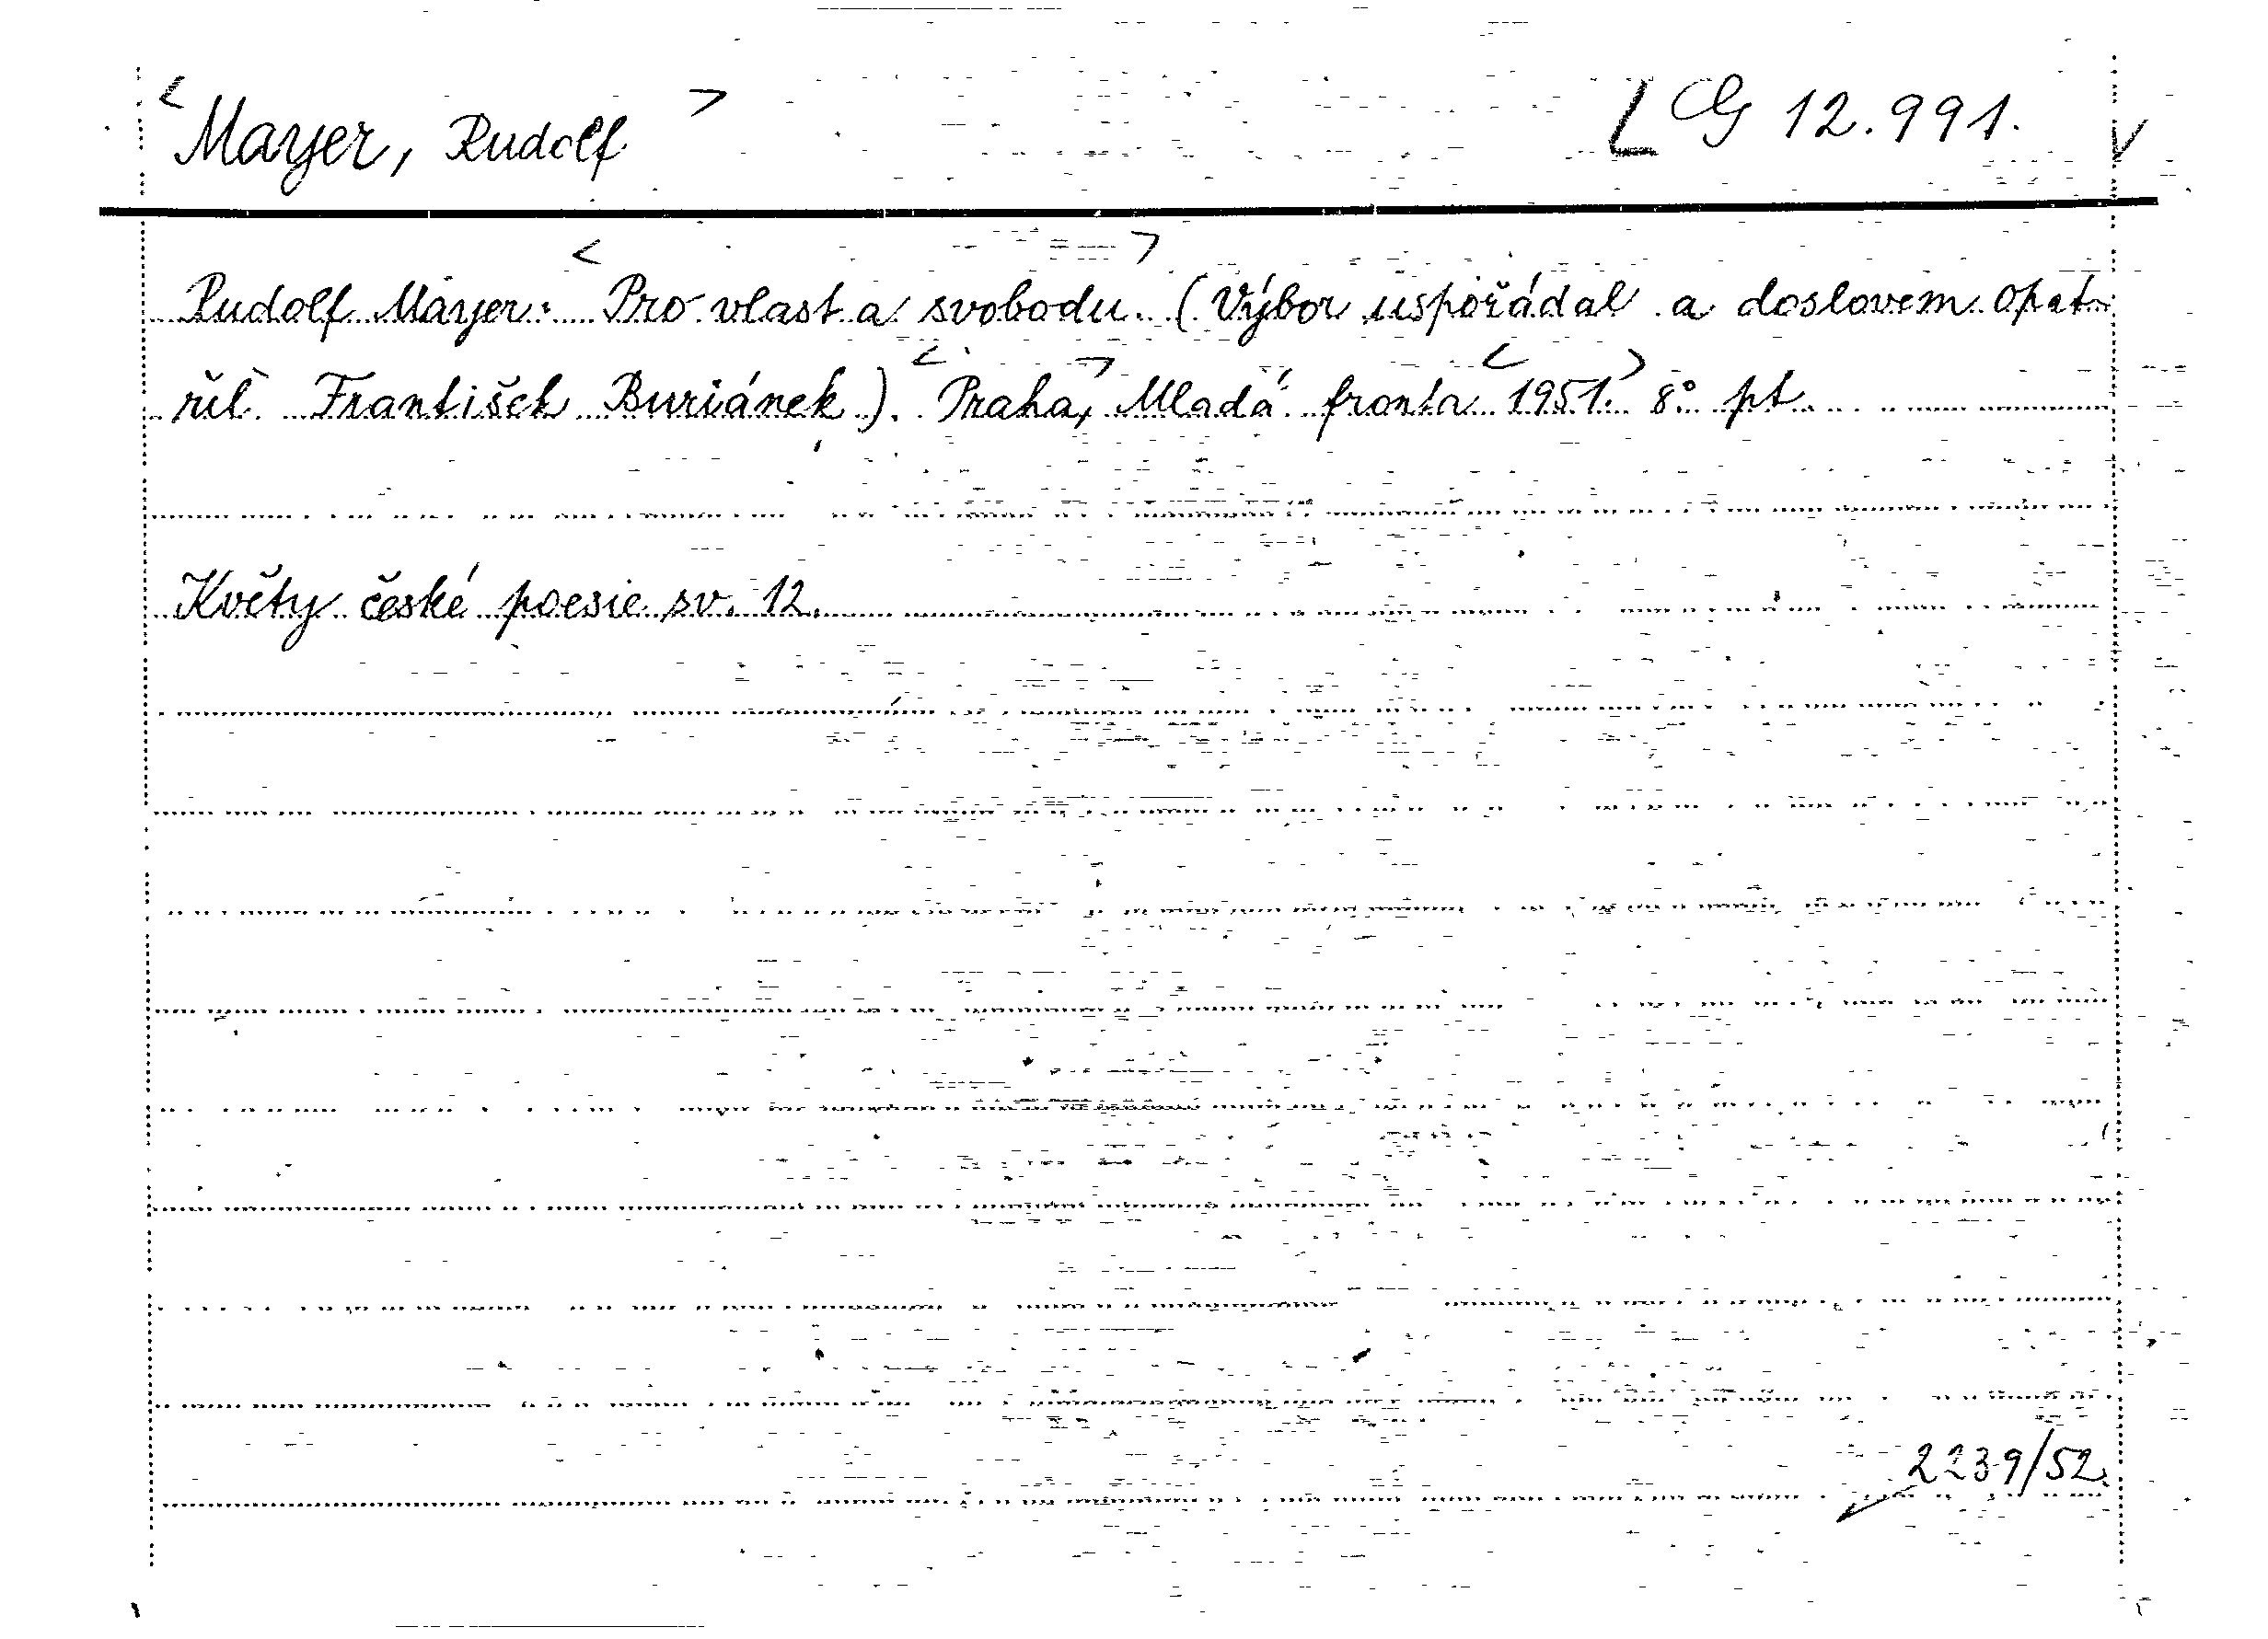 < Mayer, Rudolf > [ G 12.991. v
Rudolf Mayer: < Pro vlast a svobodu. > (Výbor uspořádal a doslovem opat-
řil František Buriánek). < Praha, > Mladá fronta < 1951. > 8° pt.
Květy české poesie sv. 12.
2239/52.